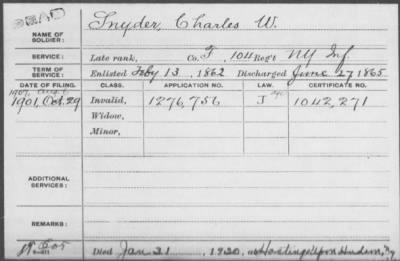 DEAD
NAME OF SOLDIER: Snyder, Charles W.
SERVICE: Late rank, Co. F, 104 Reg't NY Inf
TERM OF SERVICE: Enlisted Feby 13, 1862 Discharged June 27 1865
DATE OF FILING. CLASS. APPLICATION NO. LAW. CERTIFICATE NO.
1907, Aug
1901, Oct. 29 Invalid, 1276,756 J 1042,271
Widow,
Minor,
ADDITIONAL SERVICES:
REMARKS:
Died Jan 31, 1920, at Hastings Upon Hudson, Ny